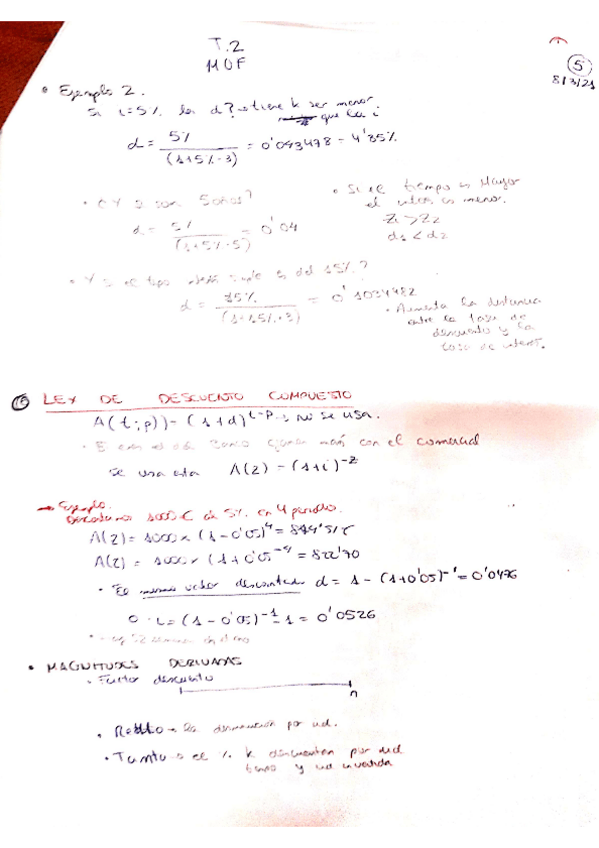 T.2
MOF
5
8/3/21
• Ejemplo 2.
Si i=5% la d? → tiene k ser menor
que la i
d = 5% / (1+5%·3) = 0'043478 = 4'35%
• ¿Y si son 5 años?
d = 5% / (1+5%·5) = 0'04
• Si el tiempo es Mayor
el valor es menor.
Z1 > Z2
d1 < d2
• Y si el tipo interés simple es del 15%?
d = 15% / (1+15%·3) = 0'1034482
• Aumenta la distancia
entre la tasa de
descuento y la
tasa de interés.
LEY DE DESCUENTO COMPUESTO
A(t;p) = (1+d)^t-p, no se usa.
con el comercial
se usa esta A(z) = (1+i)^-z
→ Ejemplo.
Descontamos 1000€ al 5% en 4 periodos.
A(z) = 1000 × (1-0'05)^4 = 814'51€
A(z) = 1000 × (1+0'05)^-4 = 822'70
• El mismo valor descontado d = 1 - (1+0'05)^-1 = 0'0476
o i = (1-0'05)^-1 - 1 = 0'0526
• MAGNITUDES DERIVADAS
• Factor descuento
n
• Rédito → La disminución por ud.
• Tanto → el % k descuentan por ud
tiempo y ud invertida